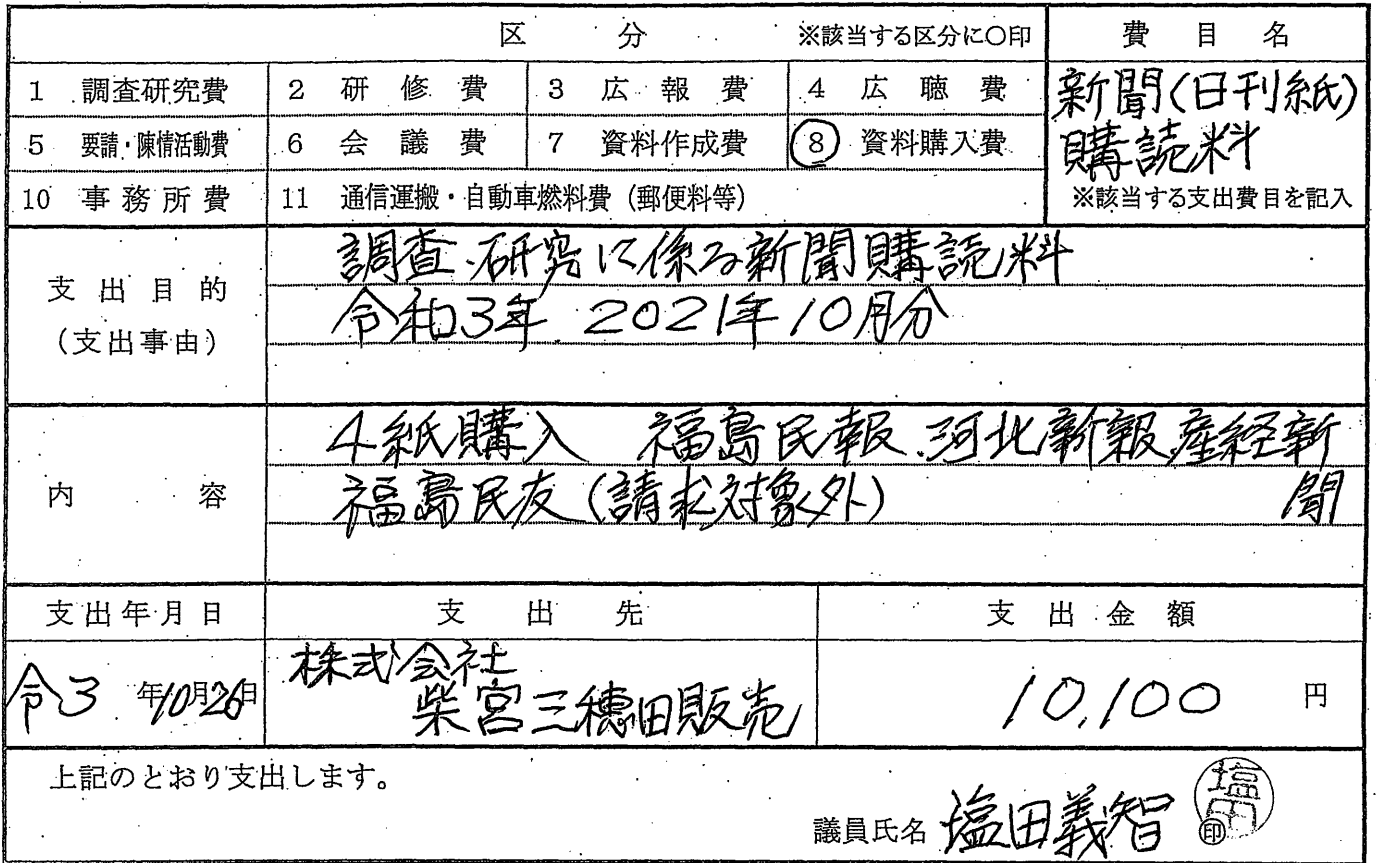 区 分 ※該当する区分に○印 費目名
1 調査研究費 2 研修費 3 広報費 4 広聴費 新聞(日刊紙)
5 要請・陳情活動費 6 会議費 7 資料作成費 8 資料購入費 購読料
10 事務所費 11 通信運搬・自動車燃料費(郵便料等) ※該当する支出費目を記入
支出目的
(支出事由)
調査・研究に係る新聞購読料
令和3年 2021年10月分
内容
4紙購入 福島民報、河北新報、産経新
聞
福島民友(請求対象外)
支出年月日 支出先 支出金額
令3年10月26日 株式会社
柴宮三穂田販売 10,100円
上記のとおり支出します。
議員氏名 塩田義智 印
塩田